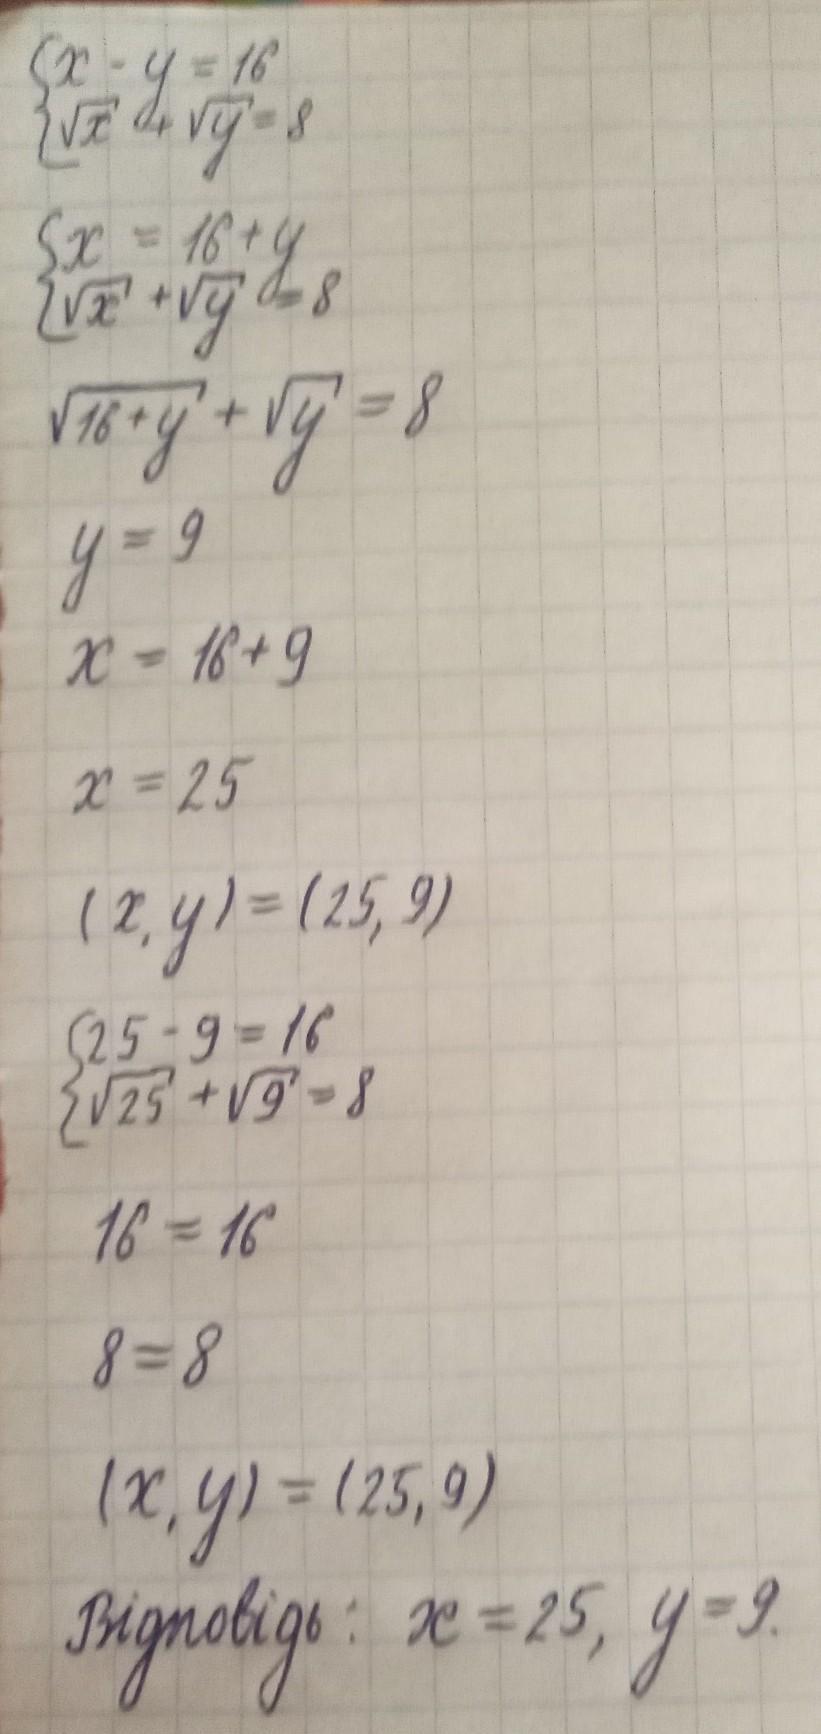 {x - y = 16
{√x + √y = 8
{x = 16 + y
{√x + √y = 8
√16 + y + √y = 8
y = 9
x = 16 + 9
x = 25
(x, y) = (25, 9)
{25 - 9 = 16
{√25 + √9 = 8
16 = 16
8 = 8
(x, y) = (25, 9)
Відповідь: x = 25, y = 9.